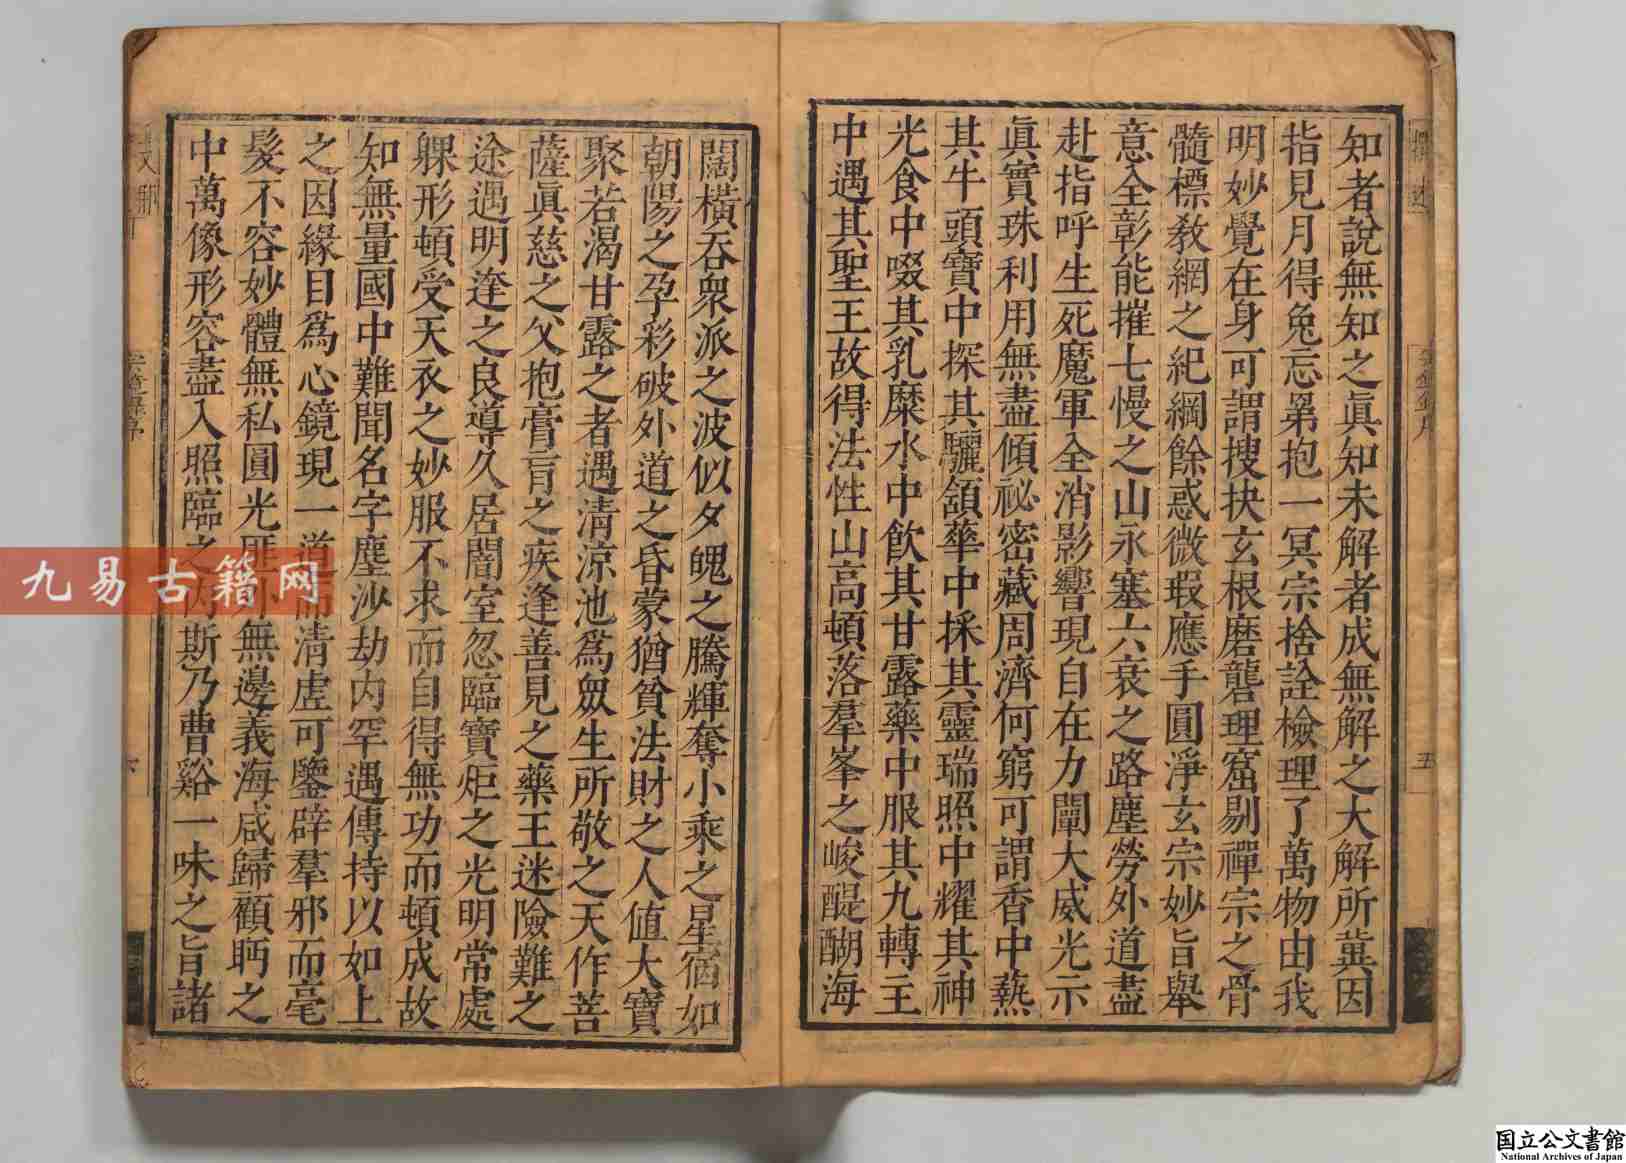 知者說無知之眞知未解者成無解之大解所兾因
指見月得兔忘罤抱一冥宗捨詮檢理了萬物由我
明妙覺在身可謂搜抉玄根磨礱理窟剔禪宗之骨
髓標敎網之紀綱餘惑微瑕應手圓淨玄宗妙旨舉
意全彰能摧七慢之山永塞六衰之路塵勞外道盡
赴指呼生死魔軍全消影響現自在力闡大威光示
眞實珠利用無盡傾祕密藏周濟何窮可謂香中爇
其牛頭寶中探其驪頷華中採其靈瑞照中耀其神
光食中啜其乳糜水中飲其甘露藥中服其九轉主
中遇其聖王故得法性山高頓落羣峯之峻醍醐海
闊橫吞衆派之波似夕魄之騰輝奪小乘之星宿如
朝陽之孕彩破外道之昏蒙猶貧法財之人値大寶
聚若渴甘露之者遇淸涼池爲衆生所敬之天作菩
薩眞慈之父抱膏肓之疾逢善見之藥王迷險難之
途遇明達之良導久居闇室忽臨寶炬之光明常處
躶形頓受天衣之妙服不求而自得無功而頓成故
知無量國中難聞名字塵沙劫内罕遇傳持以如上
之因緣目爲心鏡現一道而淸虛可鑒辟羣邪而毫
髮不容妙體無私圓光匪外無邊義海咸歸顧眄之
中萬像形容盡入照臨之内斯乃曹谿一味之旨諸
五
九易古籍网
国立公文書館
National Archives of Japan